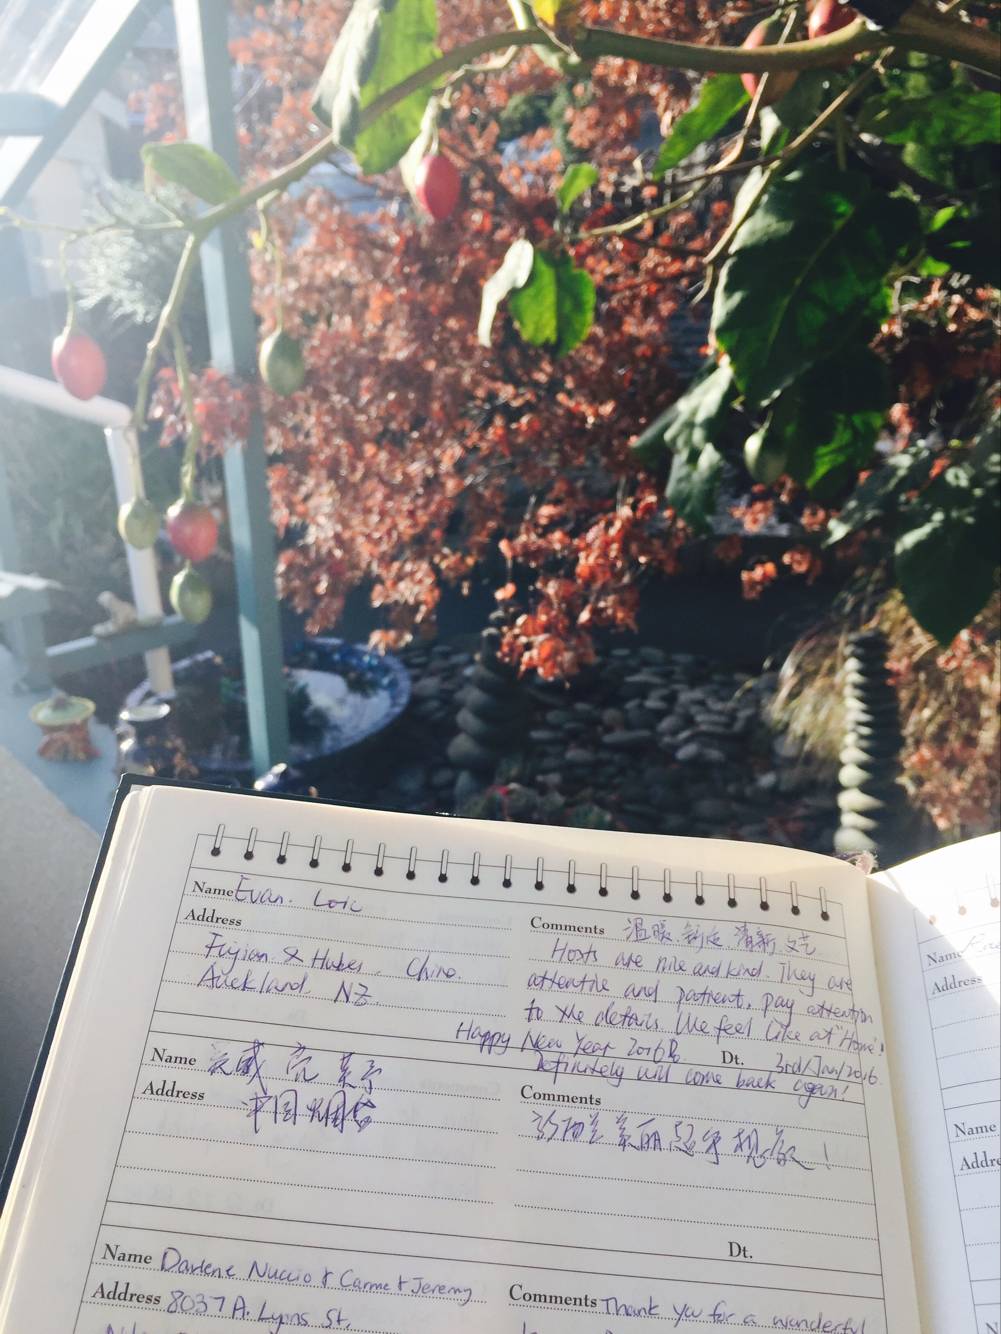 Name Evan. Loic
Address
Fujian & Hubei. China.
Auckland NZ.
Comments 温暖 清新 文艺
Hosts are nice and kind. They are
attentive and patient, pay attention
to the details. We feel like at "Home"!
Happy New Year 2016
Dt. 3rd/Jan/2016
Definitely will come back again!
Name
Address 中国烟台
Comments
美丽
Dt.
Name Darlene Nuccio & Carme & Jeremy
Address 8037 A. Lyons St.
Comments Thank you for a wonderful
Name
Address
Name
Addre
N